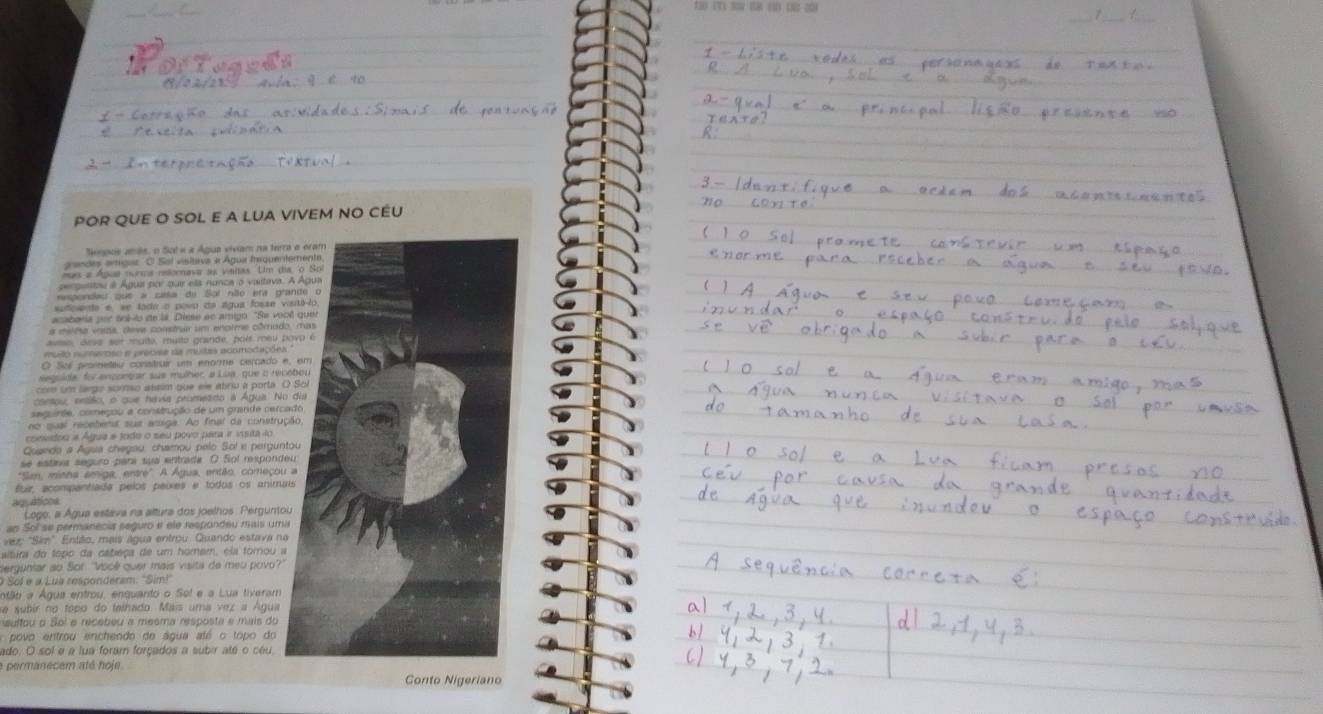 Português
aula: 9 e 10
1 - Correção das atividades: Sinais de pontuação
e receita culinária
2 - Interpretação textual.
POR QUE O SOL E A LUA VIVEM NO CÉU
Tempos atrás, o Sol e a Água viviam na terra e eram
grandes amigos. O Sol visitava a Água frequentemente,
mas a Água nunca retornava as visitas. Um dia, o Sol
perguntou à Água por que ela nunca o visitava. A Água
respondeu que a casa do Sol não era grande o
suficiente e, se todo o povo da água fosse visitá-lo,
acabaria por tirá-lo de lá. Disse ao amigo: "Se você quer
a minha visita, deve construir um enorme cômodo, mas
aviso, deve ser muito, muito grande, pois meu povo é
muito numeroso e precisa de muitas acomodações."
O Sol prometeu construir um enorme cercado e, em
seguida, foi encontrar sua mulher, a Lua, que o recebeu
com um largo sorriso assim que ele abriu a porta. O Sol
contou, então, o que havia prometido à Água. No dia
seguinte, começou a construção de um grande cercado,
no qual receberia sua amiga. Ao final da construção,
convidou a Água e todo o seu povo para ir visitá-lo.
Quando a Água chegou, chamou pelo Sol e perguntou
se estava seguro para sua entrada. O Sol respondeu:
"Sim, minha amiga, entre". A Água, então, começou a
fluir, acompanhada pelos peixes e todos os animais
aquáticos.
Logo, a Água estava na altura dos joelhos. Perguntou
ao Sol se permanecia seguro e ele respondeu mais uma
vez: "Sim". Então, mais água entrou. Quando estava na
altura do topo da cabeça de um homem, ela tornou a
perguntar ao Sol: "Você quer mais visita de meu povo?"
O Sol e a Lua responderam: "Sim!"
ntão a Água entrou, enquanto o Sol e a Lua tiveram
e subir no topo do telhado. Mais uma vez a Água
nsultou o Sol e recebeu a mesma resposta e mais do
povo entrou enchendo de água até o topo do
ado. O sol e a lua foram forçados a subir até o céu,
e permanecem até hoje.
Conto Nigeriano
1 - Liste todos os personagens do texto.
R A Lua, Sol e a água
2 - qual é a principal lição presente no
texto?
R:
3 - Identifique a ordem dos acontecimentos
no conto:
( ) O Sol promete construir um espaço
enorme para receber a água e seu povo.
( ) A Água e seu povo começam a
inundar o espaço construído pelo sol, que
se vê obrigado a subir para o céu.
( ) O sol e a Água eram amigo, mas
a Água nunca visitava o sol por causa
do tamanho de sua casa.
( ) O sol e a Lua ficam presos no
céu por causa da grande quantidade
de Água que inundou o espaço construído.
A sequência correta é:
a) 1, 2, 3, 4.
b) 4, 2, 3, 1.
c) 4, 3, 1, 2.
d) 2, 1, 4, 3.